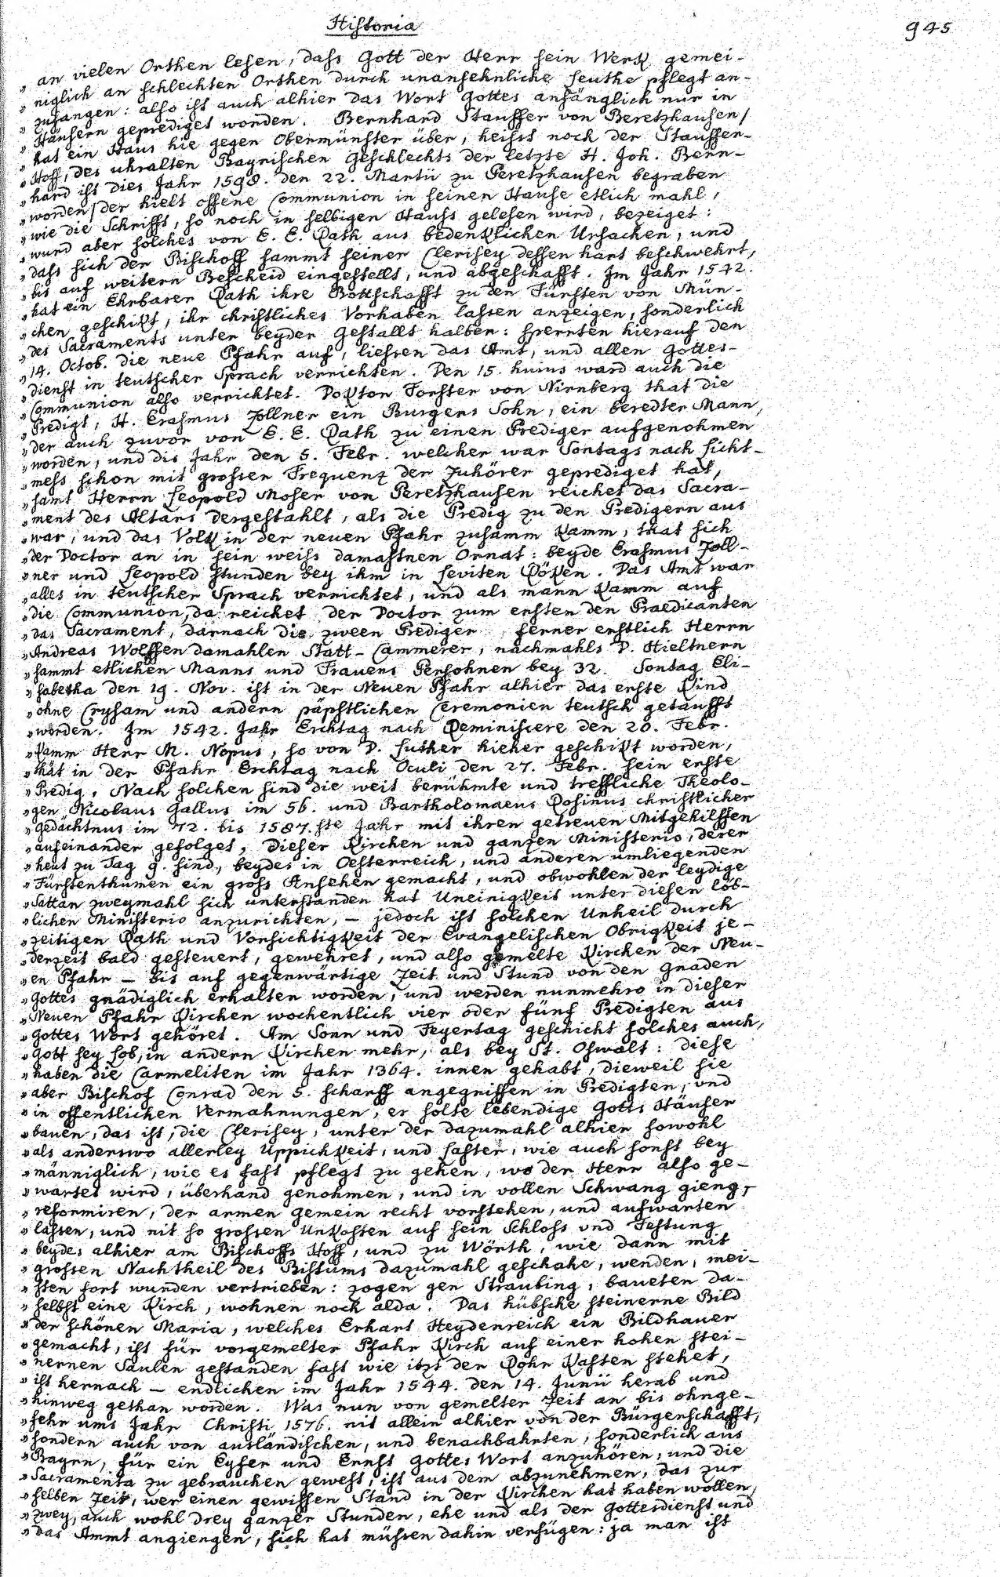 Historia
945
an vielen Orthen lesen, dass Gott der Herr sein Werk gemei-
„ niglich an schlechten Orthen durch unansehnliche Leuthe pflegt an-
„ zufangen: also ist auch alhier das Wort Gottes anfänglich nur in
„ Häusern geprediget worden. Bernhard Stauffer von Beretzhausen/
„ hat ein Haus hie gegen Obermünster über, heisst noch der Stauffer-
„ Hoff, des uhralten Bayrischen Geschlechts der letzte H. Joh. Bern-
„ hard ist dies Jahr 1598. den 22. Martii zu Peretzhausen begraben
„ worden/ der hielt offene Communion in seinen Hause etlich mahl,
„ wie die Schrifft, so noch in selbigen Hauss gelesen wird, bezeiget:
„ wurd aber solches von E. E. Rath aus bedenklichen Ursachen, und
„ dass sich der Bischoff sammt seiner Clerisey dessen hart beschwehrt,
„ bis auf weitern Bescheid eingestellt, und abgeschafft. Im Jahr 1542.
„ hat ein Ehrbarer Rath ihre Bottschafft zu den Fürsten von Mün-
„ chen geschikt, ihr christliches Vorhaben lassen anzeigen, sonderlich
„ des Sacraments unter beyder Gestallt halben: sperrten hierauf den
„ 14. Octob. die neue Pfahr auf, liessen das Amt, und allen Gottes-
„ dienst in teutscher Sprach verrichten. Den 15. huius ward auch die
„ Communion also verrichtet. Doktor Forster von Nirnberg that die
„ Predigt, H. Erasmus Zollner ein Burgers Sohn, ein beredter Mann,
„ der auch zuvor von E. E. Rath zu einen Prediger aufgenohmen
„ worden, und dis Jahr den 5. Febr. welcher war Sontags nach Licht-
„ mess schon mit grossen Frequenz der Zuhörer geprediget hat,
„ samt Herrn Leopold Moser von Peretzhausen reichet das Sacra-
„ ment des Altars dergestahlt, als die Predig zu den Predigern aus
„ war, und das Volk in der neuen Pfahr zusamm kamm, that sich
„ der Doctor an in sein weiss damastnen Ornat: beyde Erasmus Zoll-
„ ner und Leopold stunden bey ihm in Leviten Röken. Das Amt war
„ alles in teutscher Sprach verrichtet, und als mann kamm auf
„ die Communion, da reichet der Doctor zum ersten den Praedicanten
„ das Sacrament, darnach die zween Prediger ferner erstlich Herrn
„ Andreas Wolffen damahlen Statt-Cammerer, nachmahls D. Hieltnern
„ sammt etlichen Manns und Frauens Persohnen bey 32. Sontag Eli-
„ sabetha den 19. Nov. ist in der Neuen Pfahr alhier das erste Kind
„ ohne Crysam und andern päpstlichen Ceremonien teutsch getaufft
„ worden. Im 1542. Jahr Erchtag nach Reminiscere den 20. Febr.
„ kamm Herr M. Nopus, so von D. Luther hieher geschikt worden,
„ thät in der Pfahr Erchtag nach Oculi den 27. Febr. sein erste
„ Predig, Nach solchen sind die weit berühmte und treffliche Theolo-
„ gen Nicolaus Gallus im 56. und Bartholomaeus Rosinus christlicher
„ gedächtnus im 72. bis 1587.ste Jahr mit ihren getreuen Mitgehilffen
„ aufeinander gefolget, dieser Kirchen und ganzen Ministerio, derer
„ heut zu Tag 9. sind, beydes in Oesterreich, und anderen umliegenden
„ Fürstenthumen ein gross Ansehen gemacht, und obwohlen der leydige
„ Sattan zweymahl sich unterstanden hat Uneinigkeit unter diesen löb-
„ lichen Ministerio anzurichten, - jedoch ist solchen Unheil durch
„ zeitigen Rath und Vorsichtigkeit der Evangelischen Obrigkeit je-
„ derzeit bald gesteuert, gewehret, und also gemelte Kirchen der Neu-
„ en Pfahr - bis auf gegenwärtige Zeit und Stund von den Gnaden
„ Gottes gnädiglich erhalten worden, und werden nunmehro in dieser
„ Neuen Pfahr Kirchen wochentlich vier oder fünf Predigten aus
„ Gottes Wort gehöret. Am Sonn und Feyertag geschicht solches auch,
„ Gott sey Lob, in andern Kirchen mehr, als bey St. Oswalt: diese
„ haben die Carmeliten im Jahr 1364. innen gehabt, dieweil sie
„ aber Bischof Conrad den 5. scharff angegriffen in Predigten, und
„ in offentlichen Vermahnungen, er solte lebendige Gotts Häuser
„ bauen, das ist, die Clerisey, unter der dazumahl alhier sowohl
„ als anderswo allerley Uppichkeit, und Laster, wie auch sonst bey
„ männiglich, wie es fast pflegt zu gehen, wo der Herr also ge-
„ wartet wird, überhand genohmen, und in vollen Schwang gieng,
„ reformiren, der armen Gemein recht vorstehen, und aufwarten
„ lassen, und nit so grossen Unkosten auf sein Schloss und Festung
„ beydes alhier am Bischoffs Hoff, und zu Wörth, wie dann mit
„ grossen Nachtheil des Bistums dazumahl geschahe, wenden, mei-
„ sten fort wurden vertrieben: zogen gen Straubing, baueten da-
„ selbst eine Kirch, wohnen noch alda. Das hübsche steinerne Bild
„ der schönen Maria, welches Erhart Heydenreich ein Bildhauer
„ gemacht, ist für vorgemelter Pfahr Kirch auf einer hohen stei-
„ nernen Saulen gestanden fast wie itzt der Rohr Kasten stehet,
„ ist hernach - endlichen im Jahr 1544. den 14. Junii herab und
„ hinweg gethan worden. Was nun von gemelter Zeit an bis ohnge-
„ fehr ums Jahr Christi 1576. nit allein alhier von der Bürgerschafft,
„ sondern auch von ausländischen, und benachbahrten, sonderlich aus
„ Bayrn, für ein Eyfer und Ernst Gottes Wort anzuhören, und die
„ Sacramenta zu gebrauchen gewest, ist aus dem abzunehmen, das zur
„ selben Zeit, wer einen gewissen Stand in der Kirchen hat haben wollen,
„ zwey, auch wohl drey ganzer Stunden, ehe und als der Gottesdienst und
„ das Ammt angiengen, sich hat müssen dahin verfügen: ja man ist